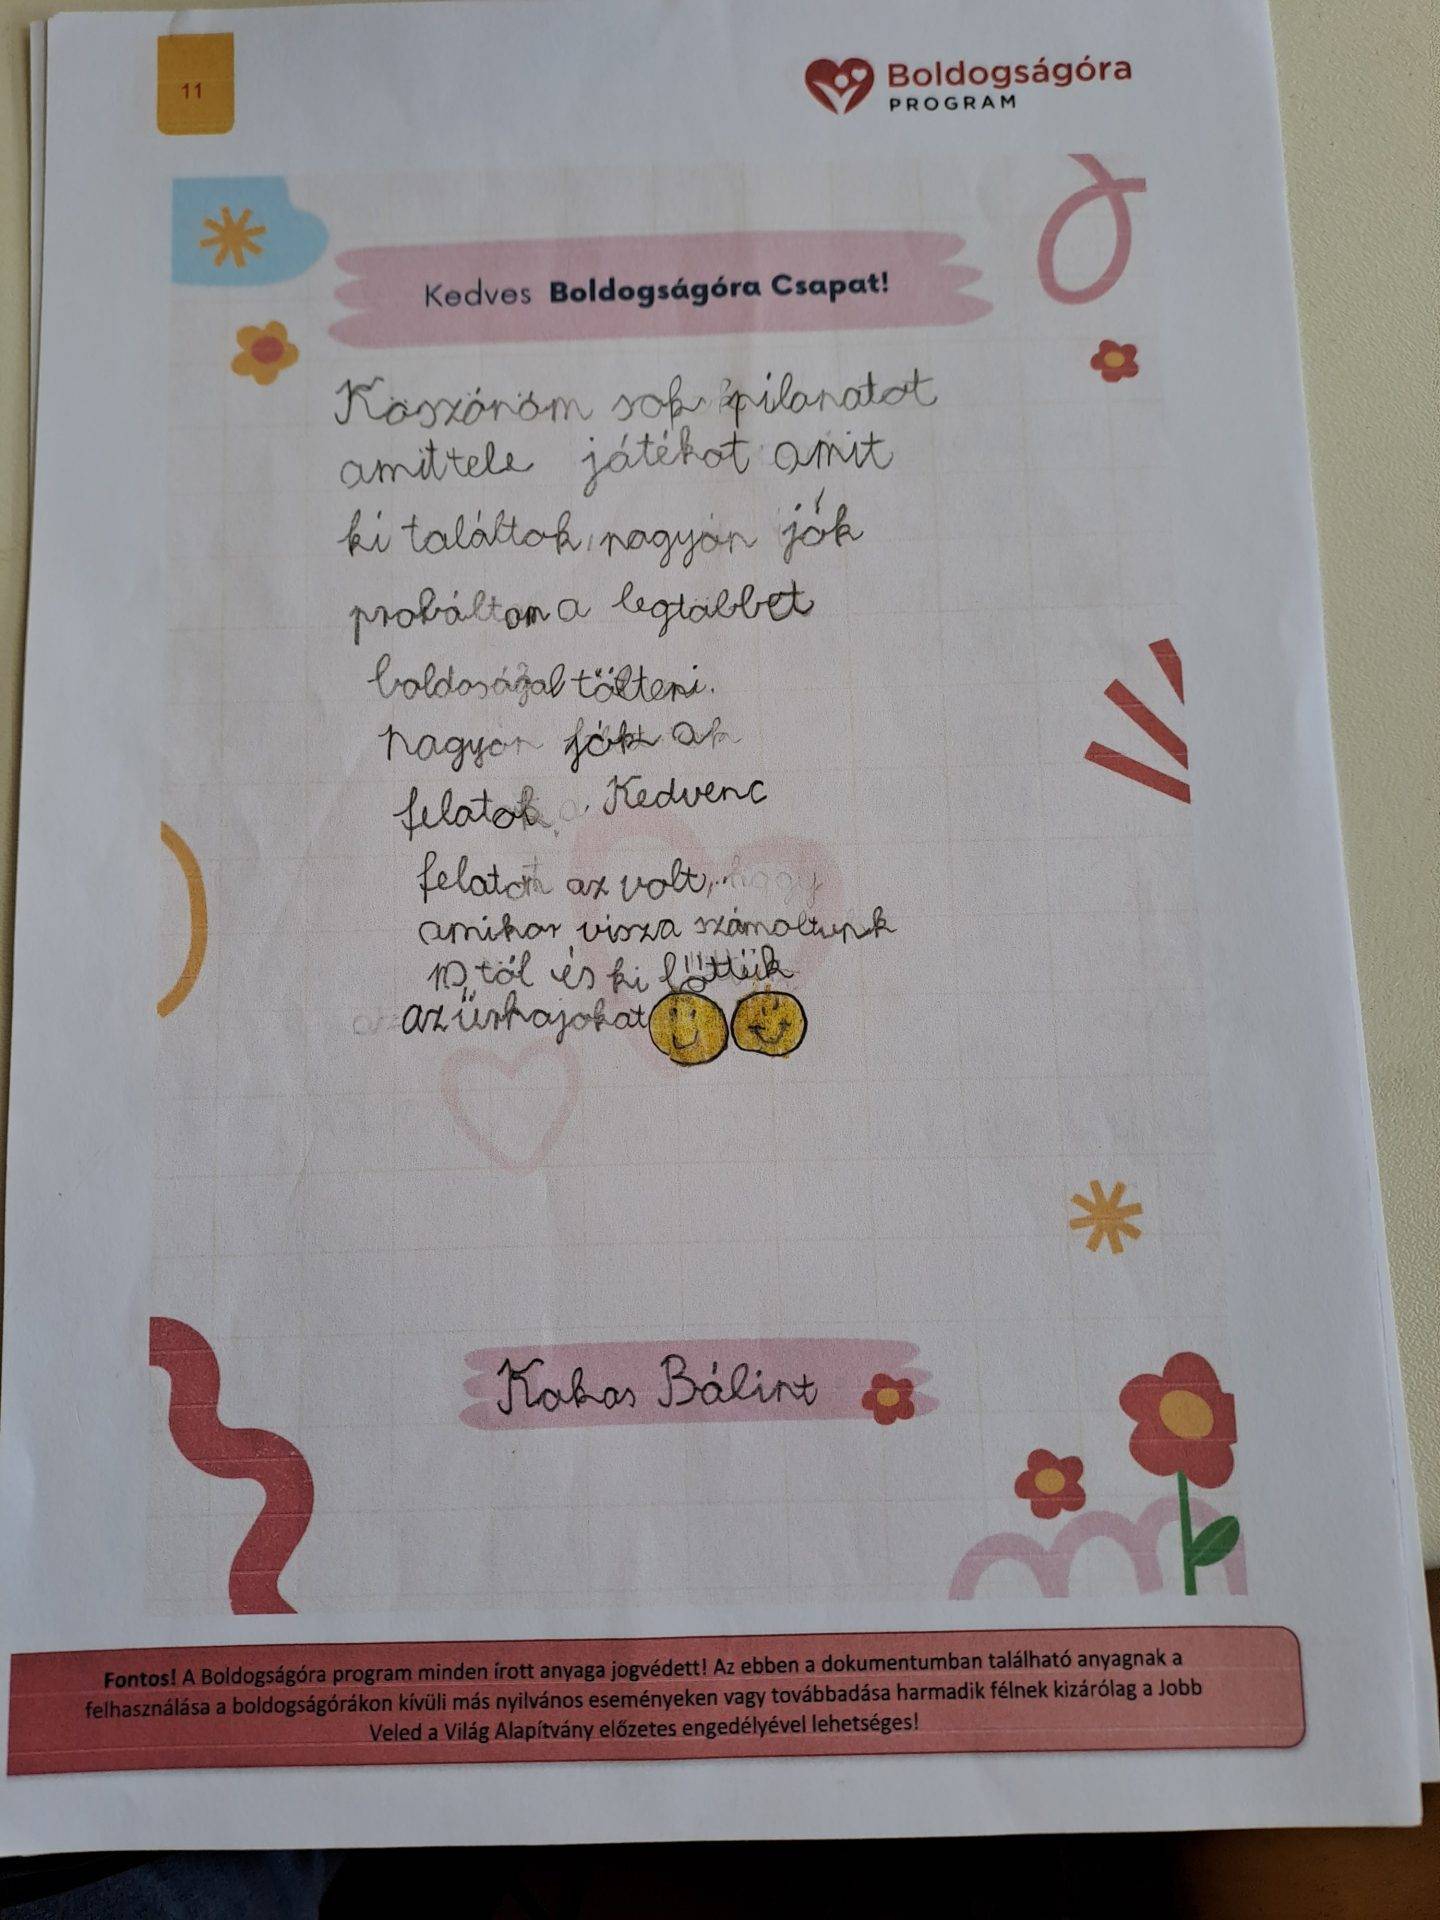 11
Boldogságóra
PROGRAM
Kedves Boldogságóra Csapat!
Köszönöm sok pilanatot
amittele játékot amit
ki találtok, nagyon jók
probáltam a legtöbbet
boldoságal tölteni.
nagyon jók ak
felatok. Kedvenc
felatom az volt,
amikor visza számoltunk
10, től és ki lőttük
az űrhajokat
Kakas Bálint
Fontos! A Boldogságóra program minden írott anyaga jogvédett! Az ebben a dokumentumban található anyagnak a
felhasználása a boldogságórákon kívüli más nyilvános eseményeken vagy továbbadása harmadik félnek kizárólag a Jobb
Veled a Világ Alapítvány előzetes engedélyével lehetséges!